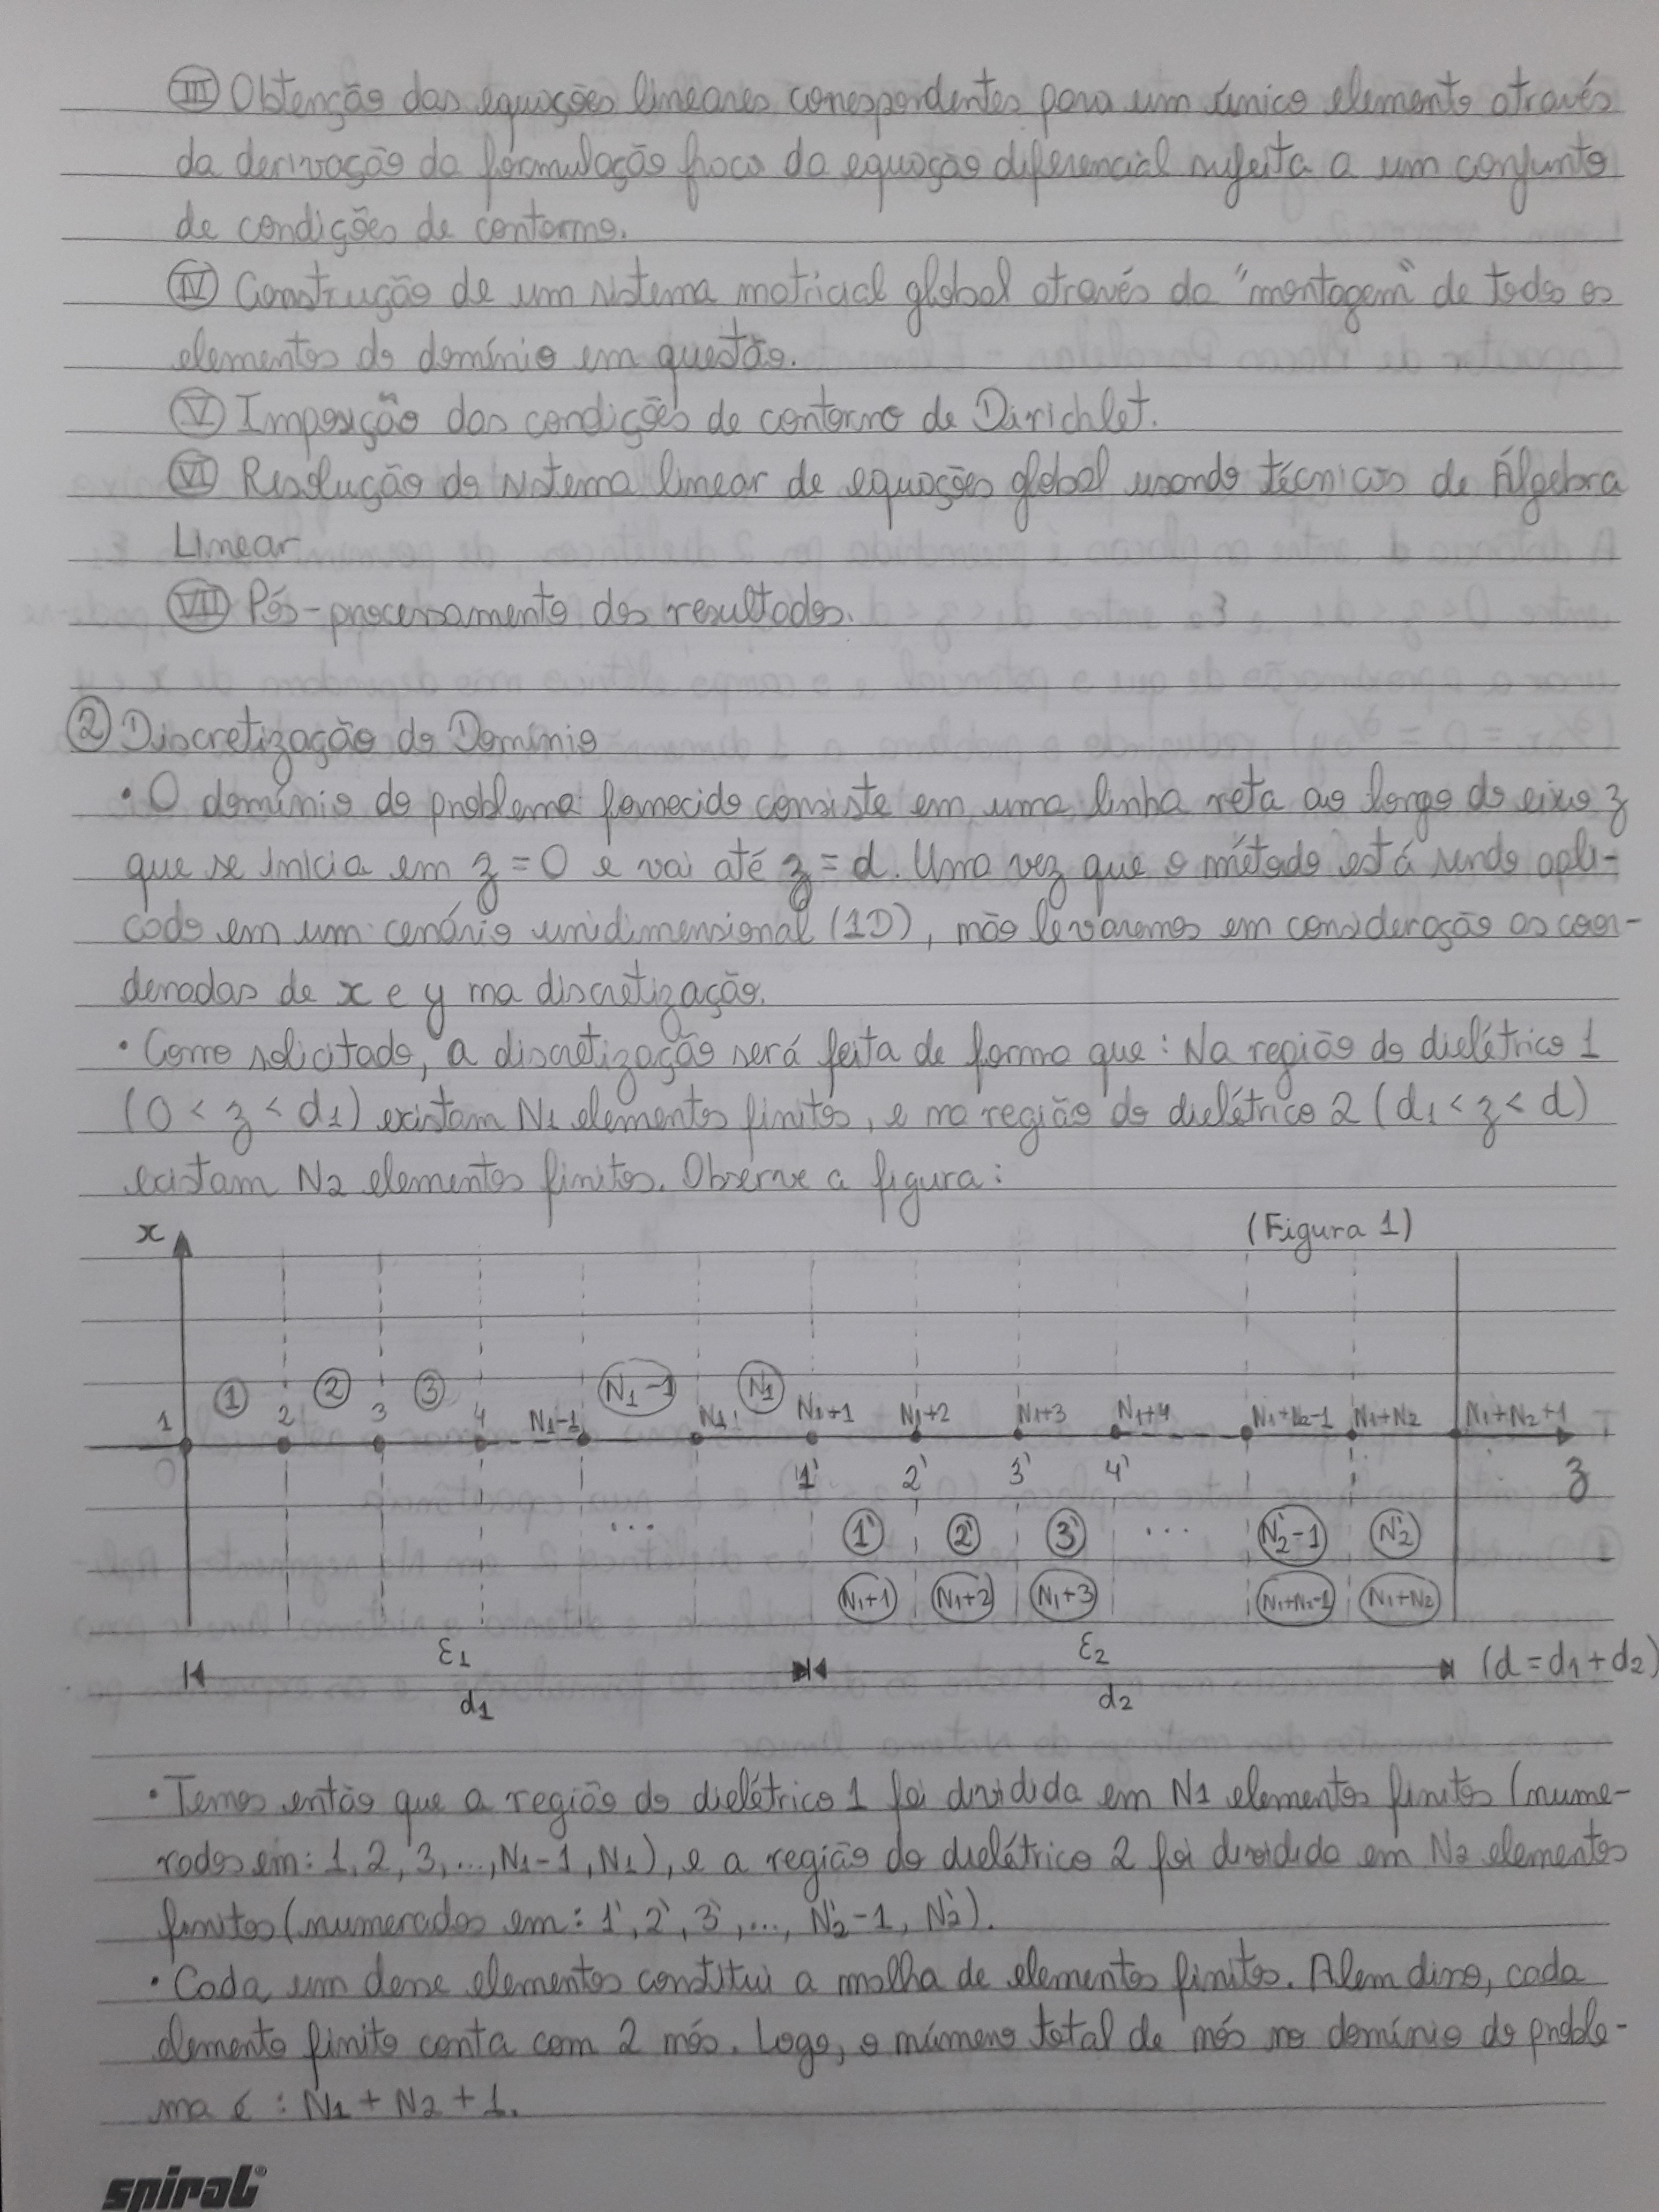 III Obtenção das equações lineares correspondentes para um único elemento através
da derivação da formulação fraca da equação diferencial sujeita a um conjunto
de condições de contorno.
IV Construção de um sistema matricial global através da "montagem" de todos os
elementos do domínio em questão.
V Imposição das condições de contorno de Dirichlet.
VI Resolução do sistema linear de equações global usando técnicas de Álgebra
Linear
VII Pós-processamento dos resultados.
2 Discretização do Domínio
• O domínio do problema fornecido consiste em uma linha reta ao longo do eixo z
que se inicia em z = 0 e vai até z = d. Uma vez que o método está sendo apli-
cado em um cenário unidimensional (1D), não levaremos em consideração as coor-
denadas de x e y na discretização.
• Como solicitado, a discretização será feita de forma que: Na região do dielétrico 1
(0 < z < d1) existam N1 elementos finitos, e na região do dielétrico 2 (d1 < z < d)
existam N2 elementos finitos. Observe a figura:
x (Figura 1)
1 2 3 N1-1 N1
1 2 3 4 N1-1 N1 N1+1 N1+2 N1+3 N1+4 N1+N2-1 N1+N2 N1+N2+1
0 1' 2' 3' 4' z
... 1' 2' 3' ... N2'-1 N2'
N1+1 N1+2 N1+3 N1+N2-1 N1+N2
ε1 ε2 (d = d1 + d2)
d1 d2
• Temos então que a região do dielétrico 1 foi dividida em N1 elementos finitos (nume-
rados em: 1, 2, 3, ..., N1-1, N1), e a região do dielétrico 2 foi dividida em N2 elementos
finitos (numerados em: 1', 2', 3', ..., N2'-1, N2').
• Cada um desse elementos constitui a malha de elementos finitos. Alem disso, cada
elemento finito conta com 2 nós. Logo, o número total de nós no domínio do proble-
ma é : N1 + N2 + 1.
spiral®